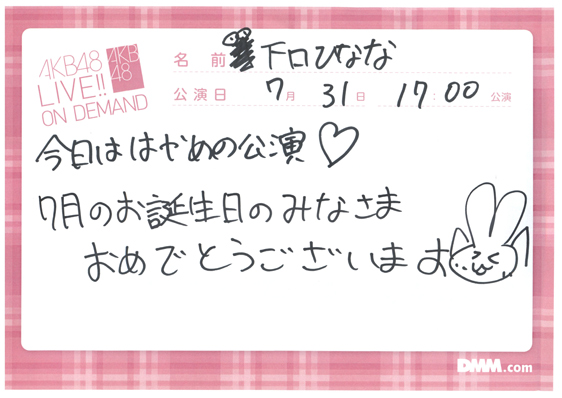 AKB48
LIVE!!
ON DEMAND
AKB
48
名前 下口ひなな
公演日 7月 31日 17:00 公演
今日ははやめの公演♡
7月のお誕生日のみなさま
おめでとうございます
DMM.com